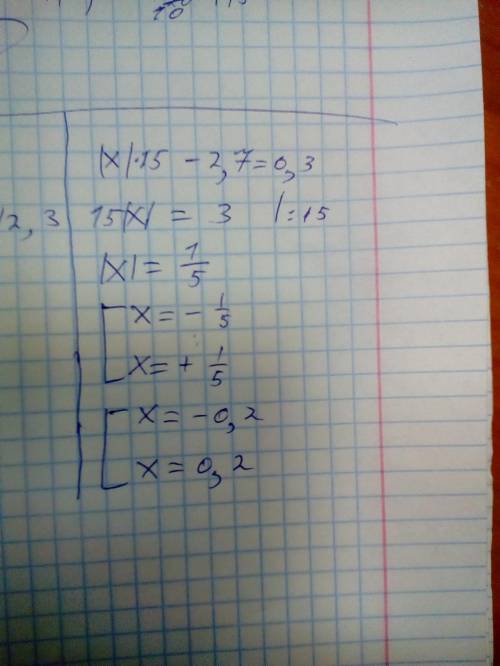 |x|·15 - 2,7 = 0,3
12,3 15|x| = 3 |:15
|x| = 1/5
x = - 1/5
x = + 1/5
x = -0,2
x = 0,2